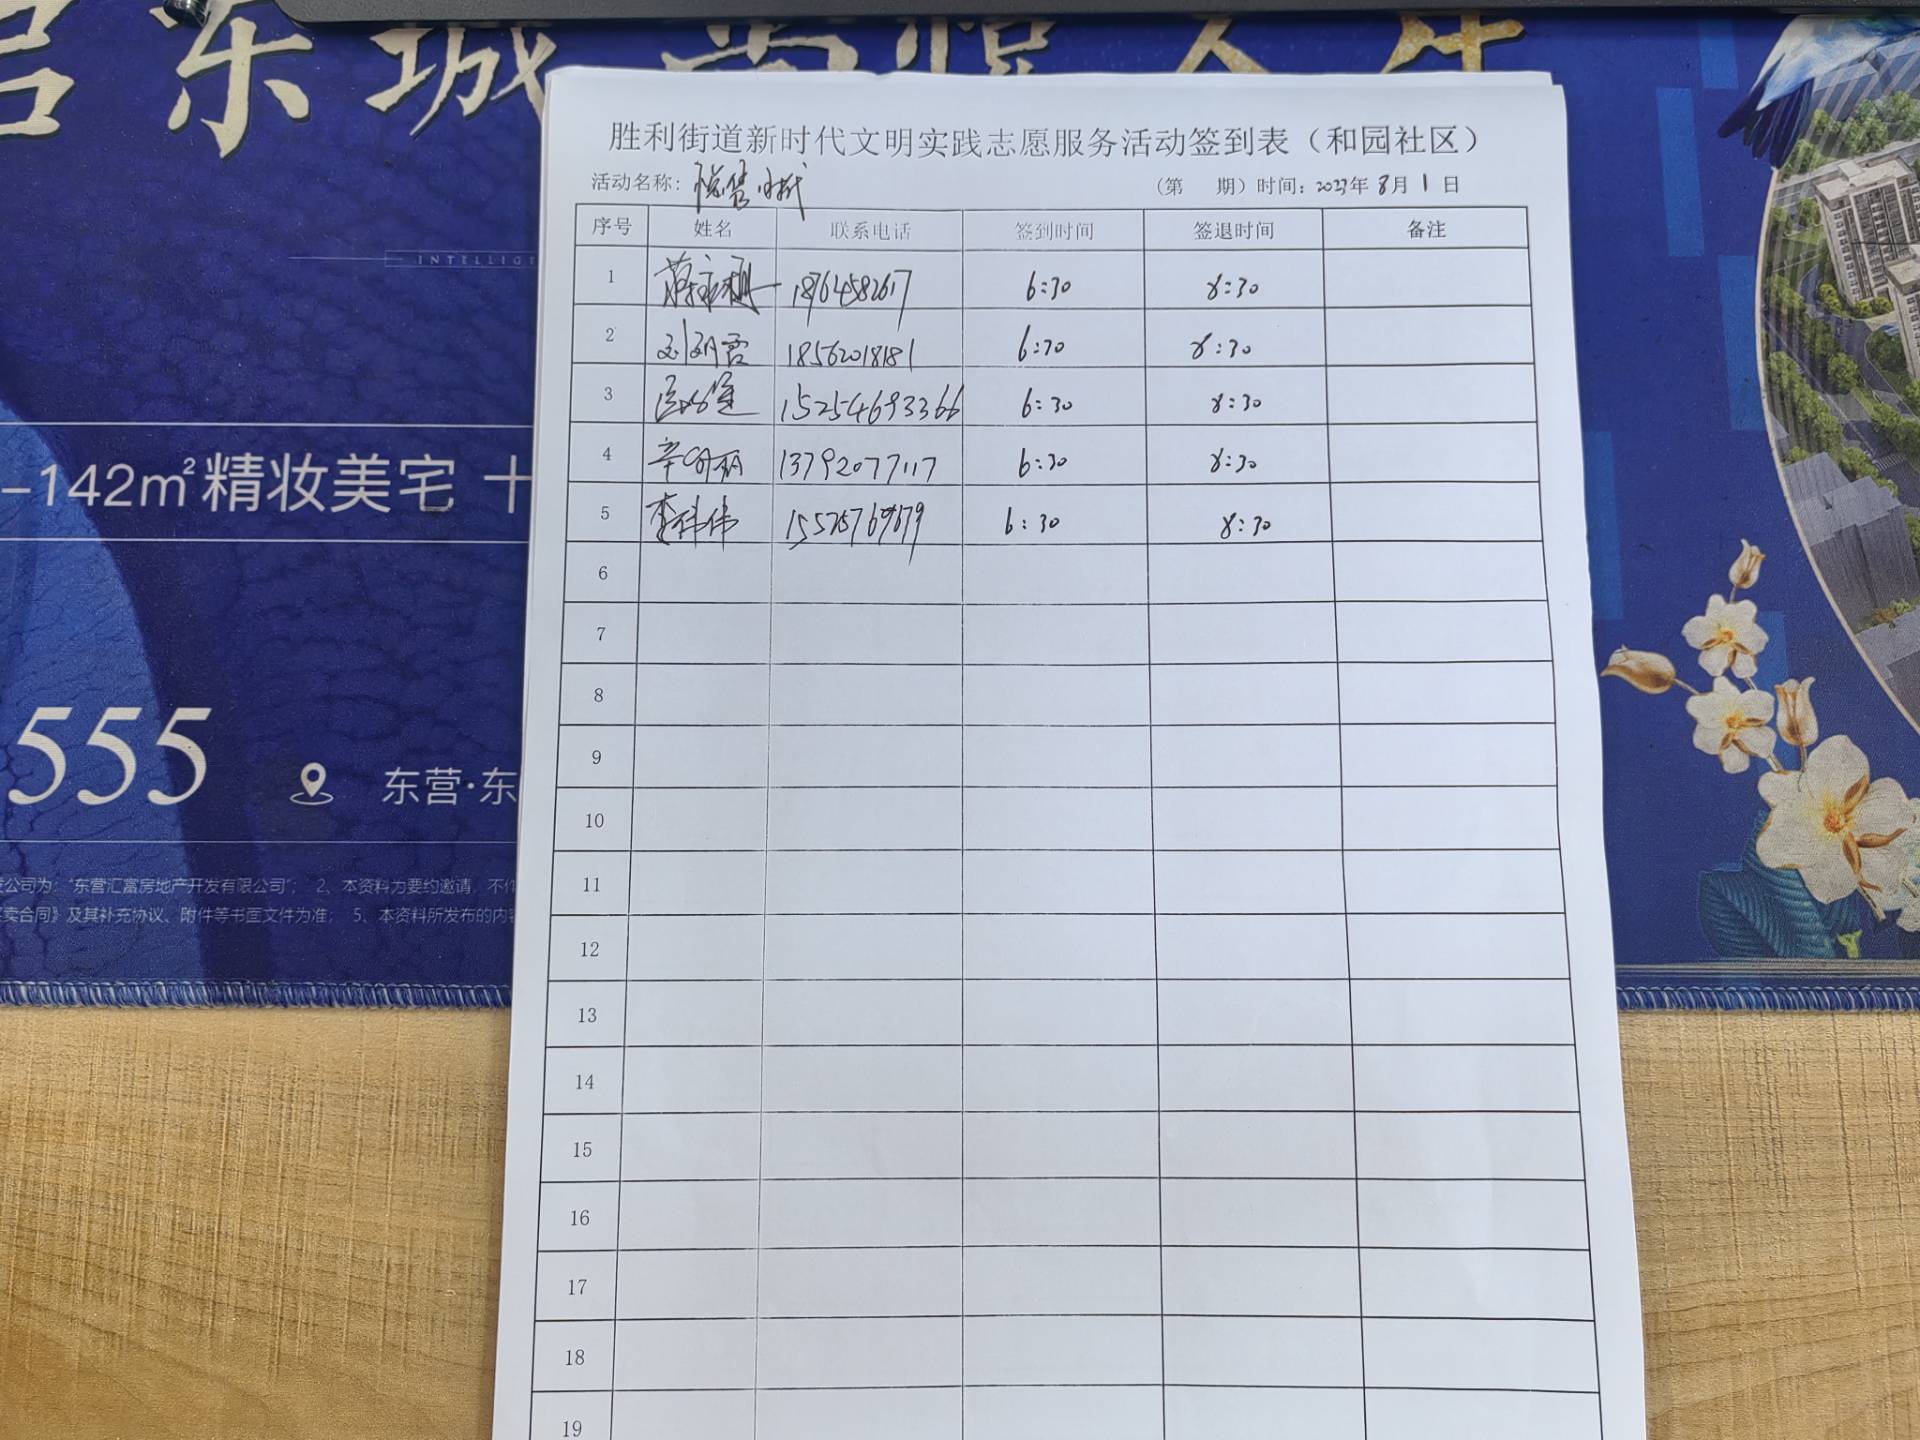 东城
INTELLIGE
-142m²精妆美宅 十
555
东营·东
公司为："东营汇富房地产开发有限公司"； 2、本资料为要约邀请，不作
卖合同》及其补充协议、附件等书面文件为准； 5、本资料所发布的内容
胜利街道新时代文明实践志愿服务活动签到表（和园社区）
活动名称： （第 期）时间：2023年 8月 1 日
序号 姓名 联系电话 签到时间 签退时间 备注
1 6:30 8:30
2 18562018181 6:30 8:30
3 15254693366 6:30 8:30
4 13792077117 6:30 8:30
5 李伟伟 6:30 8:30
6
7
8
9
10
11
12
13
14
15
16
17
18
19